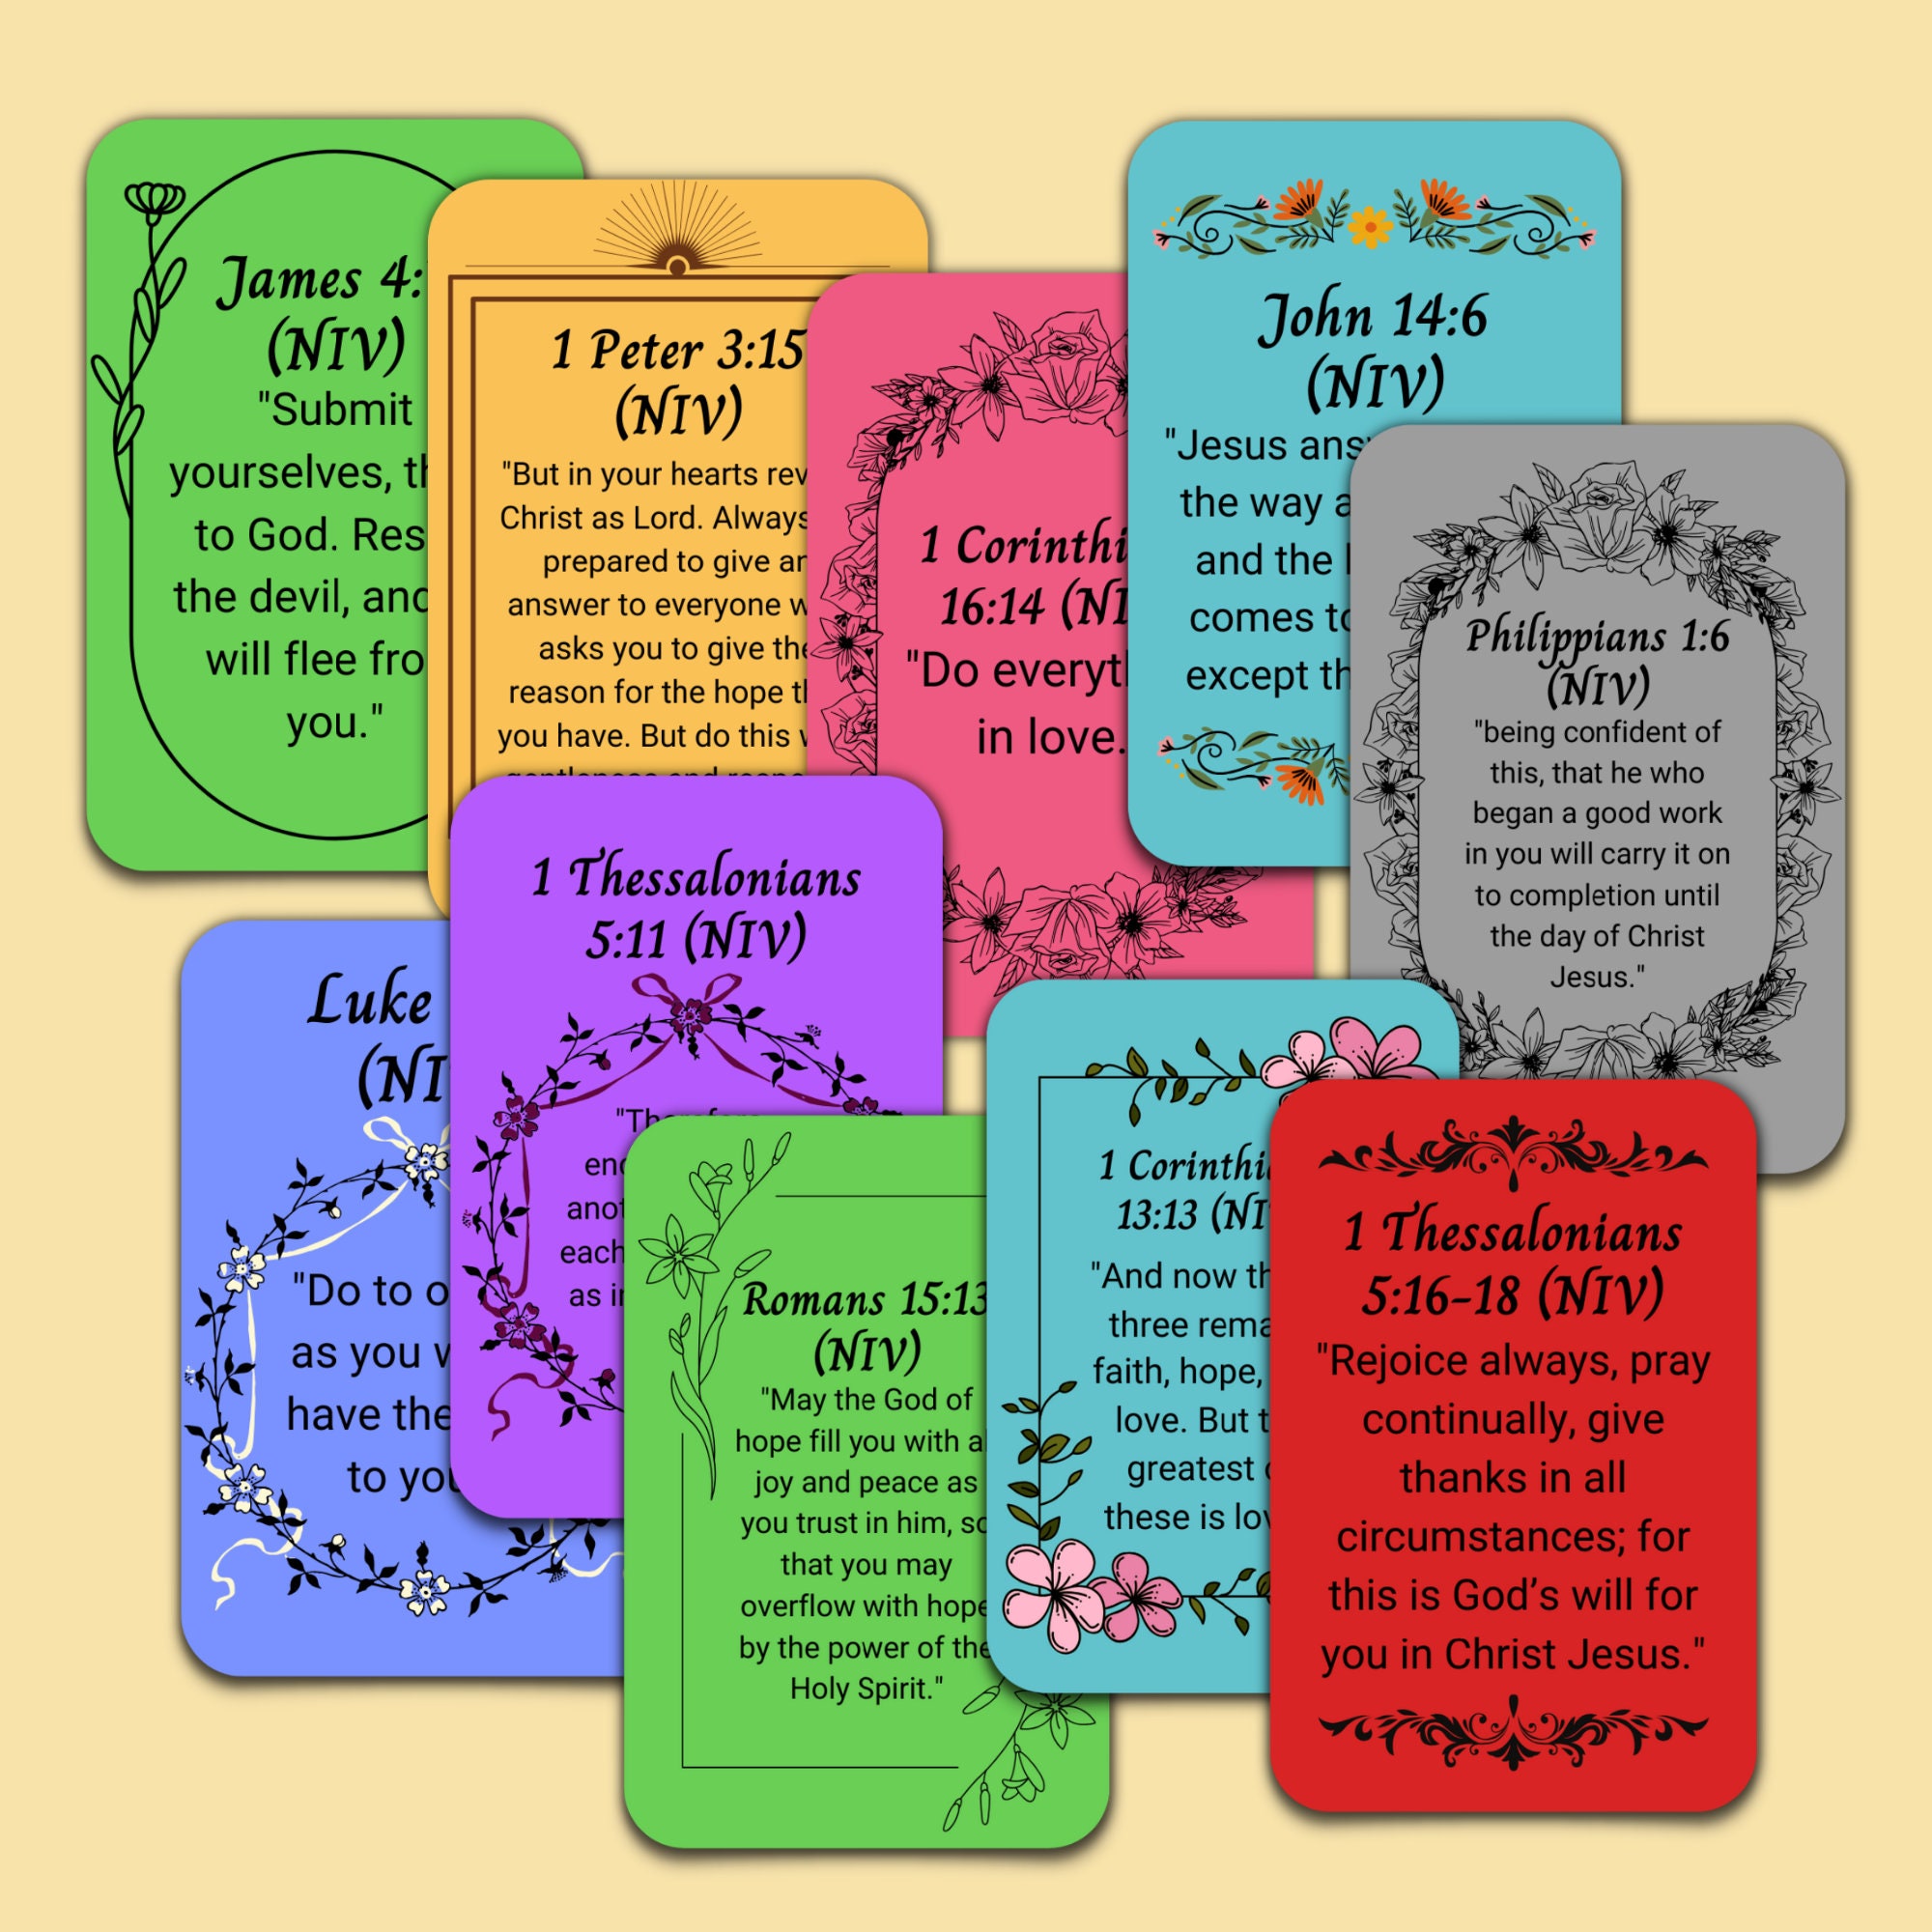 James 4:
(NIV)
"Submit
yourselves,
to God.
the devil,
will flee
you."
1 Peter 3:15
(NIV)
"But in your hearts
Christ as Lord. Always
prepared to give
answer to everyone
asks you to give
reason for the hope
you have. But do this
1
16:14
"Do
in love.
John 14:6
(NIV)
"Jesus
the way
and the
comes
except
Philippians 1:6
(NIV)
"being confident of
this, that he who
began a good work
in you will carry it on
to completion until
the day of Christ
Jesus."
Luke
"Do to
as you
have
to
1 Thessalonians
5:11 (NIV)
each
as
Romans 15:13
(NIV)
"May the God of
hope fill you with
joy and peace as
you trust in him, so
that you may
overflow with hope
by the power of the
Holy Spirit."
1
13:13
"And now
three
faith, hope,
love. But
greatest
these is
1 Thessalonians
5:16-18 (NIV)
"Rejoice always, pray
continually, give
thanks in all
circumstances; for
this is God’s will for
you in Christ Jesus."